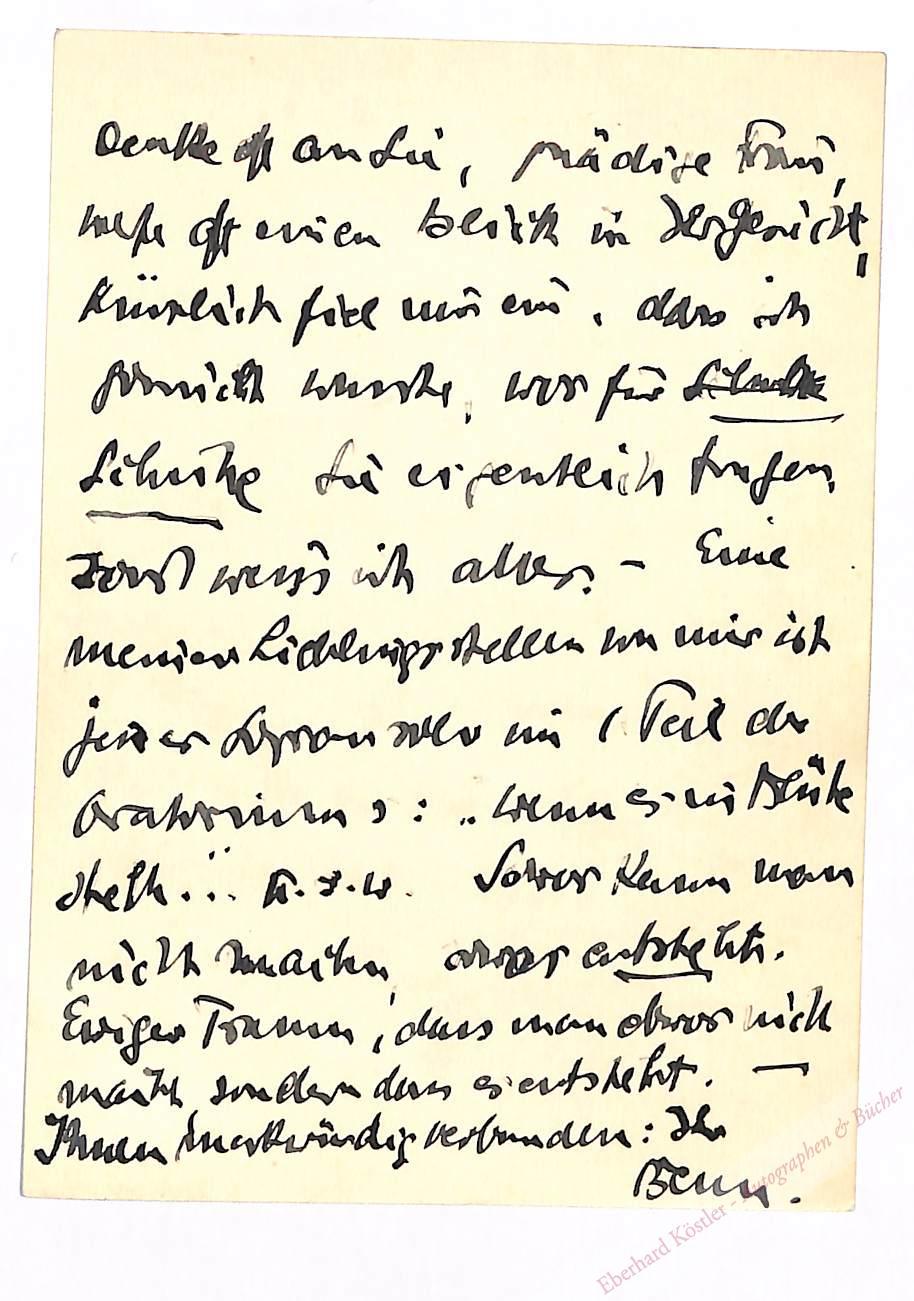 Denke oft an Sie, gnädige Frau,
werfe oft einen Blick in Ihr Gesicht,
Kürzlich fiel mir ein, dass ich
garnicht wusste, was für Schuhe
Schuhe Sie eigentlich tragen,
sonst weiss ich alles. – Eine
meiner Lieblingsstellen von mir ist
jenes Sopransolo im 1 Teil des
Oratoriums: „wenn es in Blüte
steht..." u.s.w. Sowas kann man
nicht machen, sowas entsteht.
Ewiger Traum, dass man etwas nicht
macht sondern dass es entsteht. —
Ihnen merkwürdig verbunden: Ihr
Benn.
Eberhard Köstler - Autographen & Bücher